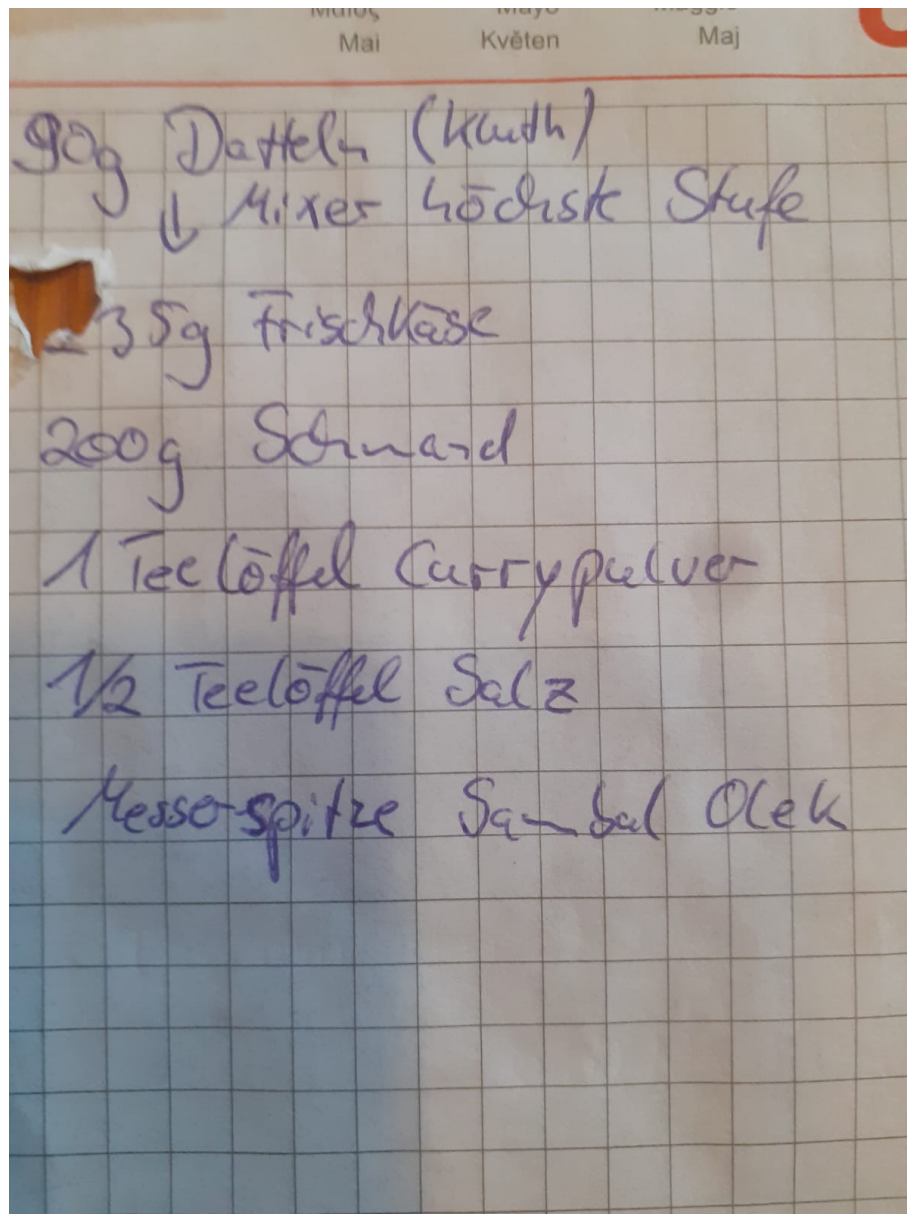 Mai Květen Maj
90g Datteln (Kluth)
↓ Mixer höchste Stufe
35g Frischkäse
200g Schmand
1 Teelöffel Currypulver
1/2 Teelöffel Salz
Messerspitze Sambal Olek